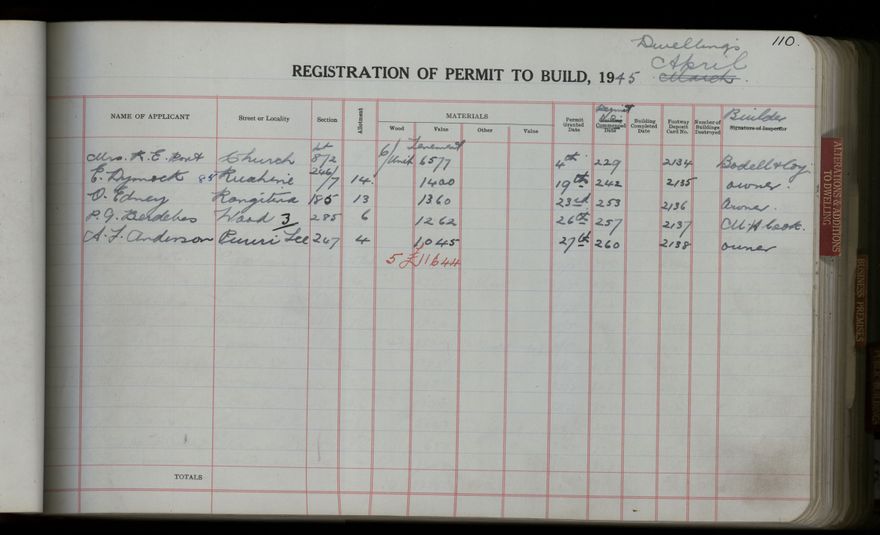 Dwellings 110.
April
REGISTRATION OF PERMIT TO BUILD, 1945 March.
NAME OF APPLICANT Street or Locality Section Allotment MATERIALS Wood Value Other Value Permit Granted Date Permit No. Building Commenced Date Building Completed Date Footway Deposit Card No. Number of Buildings Destroyed Builder Signature of Inspector
Mrs. R. E. Church Lot 8/2 6/ Tenement Unit 6577 4th 229 2134 Bodell & Coy
E. Dymock 85 Ruahine 246/7 14. 1400 19th 242 2135 owner.
O. Edney Rangitira 185 13 1360 23rd 253 2136 owner.
P. J. Wood 3 285 6 1262 26th 257 2137 Cook.
A. L. Anderson Puriri Lee 267 4 1,045 27th 260 2138 owner
5 £11644
TOTALS
ALTERATIONS & ADDITIONS TO DWELLING
BUSINESS PREMISES